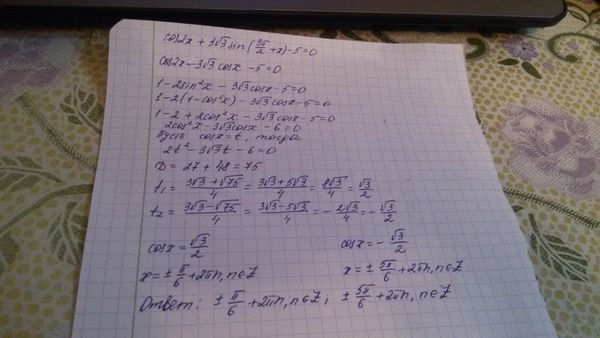 cos2x + 3√3 sin(3π/2 + x) - 5 = 0
cos2x - 3√3 cosx - 5 = 0
1 - 2sin²x - 3√3 cosx - 5 = 0
1 - 2(1 - cos²x) - 3√3 cosx - 5 = 0
1 - 2 + 2cos²x - 3√3 cosx - 5 = 0
2cos²x - 3√3 cosx - 6 = 0
Пусть cosx = t, тогда
2t² - 3√3t - 6 = 0
D = 27 + 48 = 75
t₁ = (3√3 + √75)/4 = (3√3 + 5√3)/4 = 8√3/4 = √3/2
t₂ = (3√3 - √75)/4 = (3√3 - 5√3)/4 = -2√3/4 = -√3/2
cosx = √3/2 cosx = -√3/2
x = ± π/6 + 2πn, n∈Z x = ± 5π/6 + 2πn, n∈Z
Ответ: ± π/6 + 2πn, n∈Z; ± 5π/6 + 2πn, n∈Z